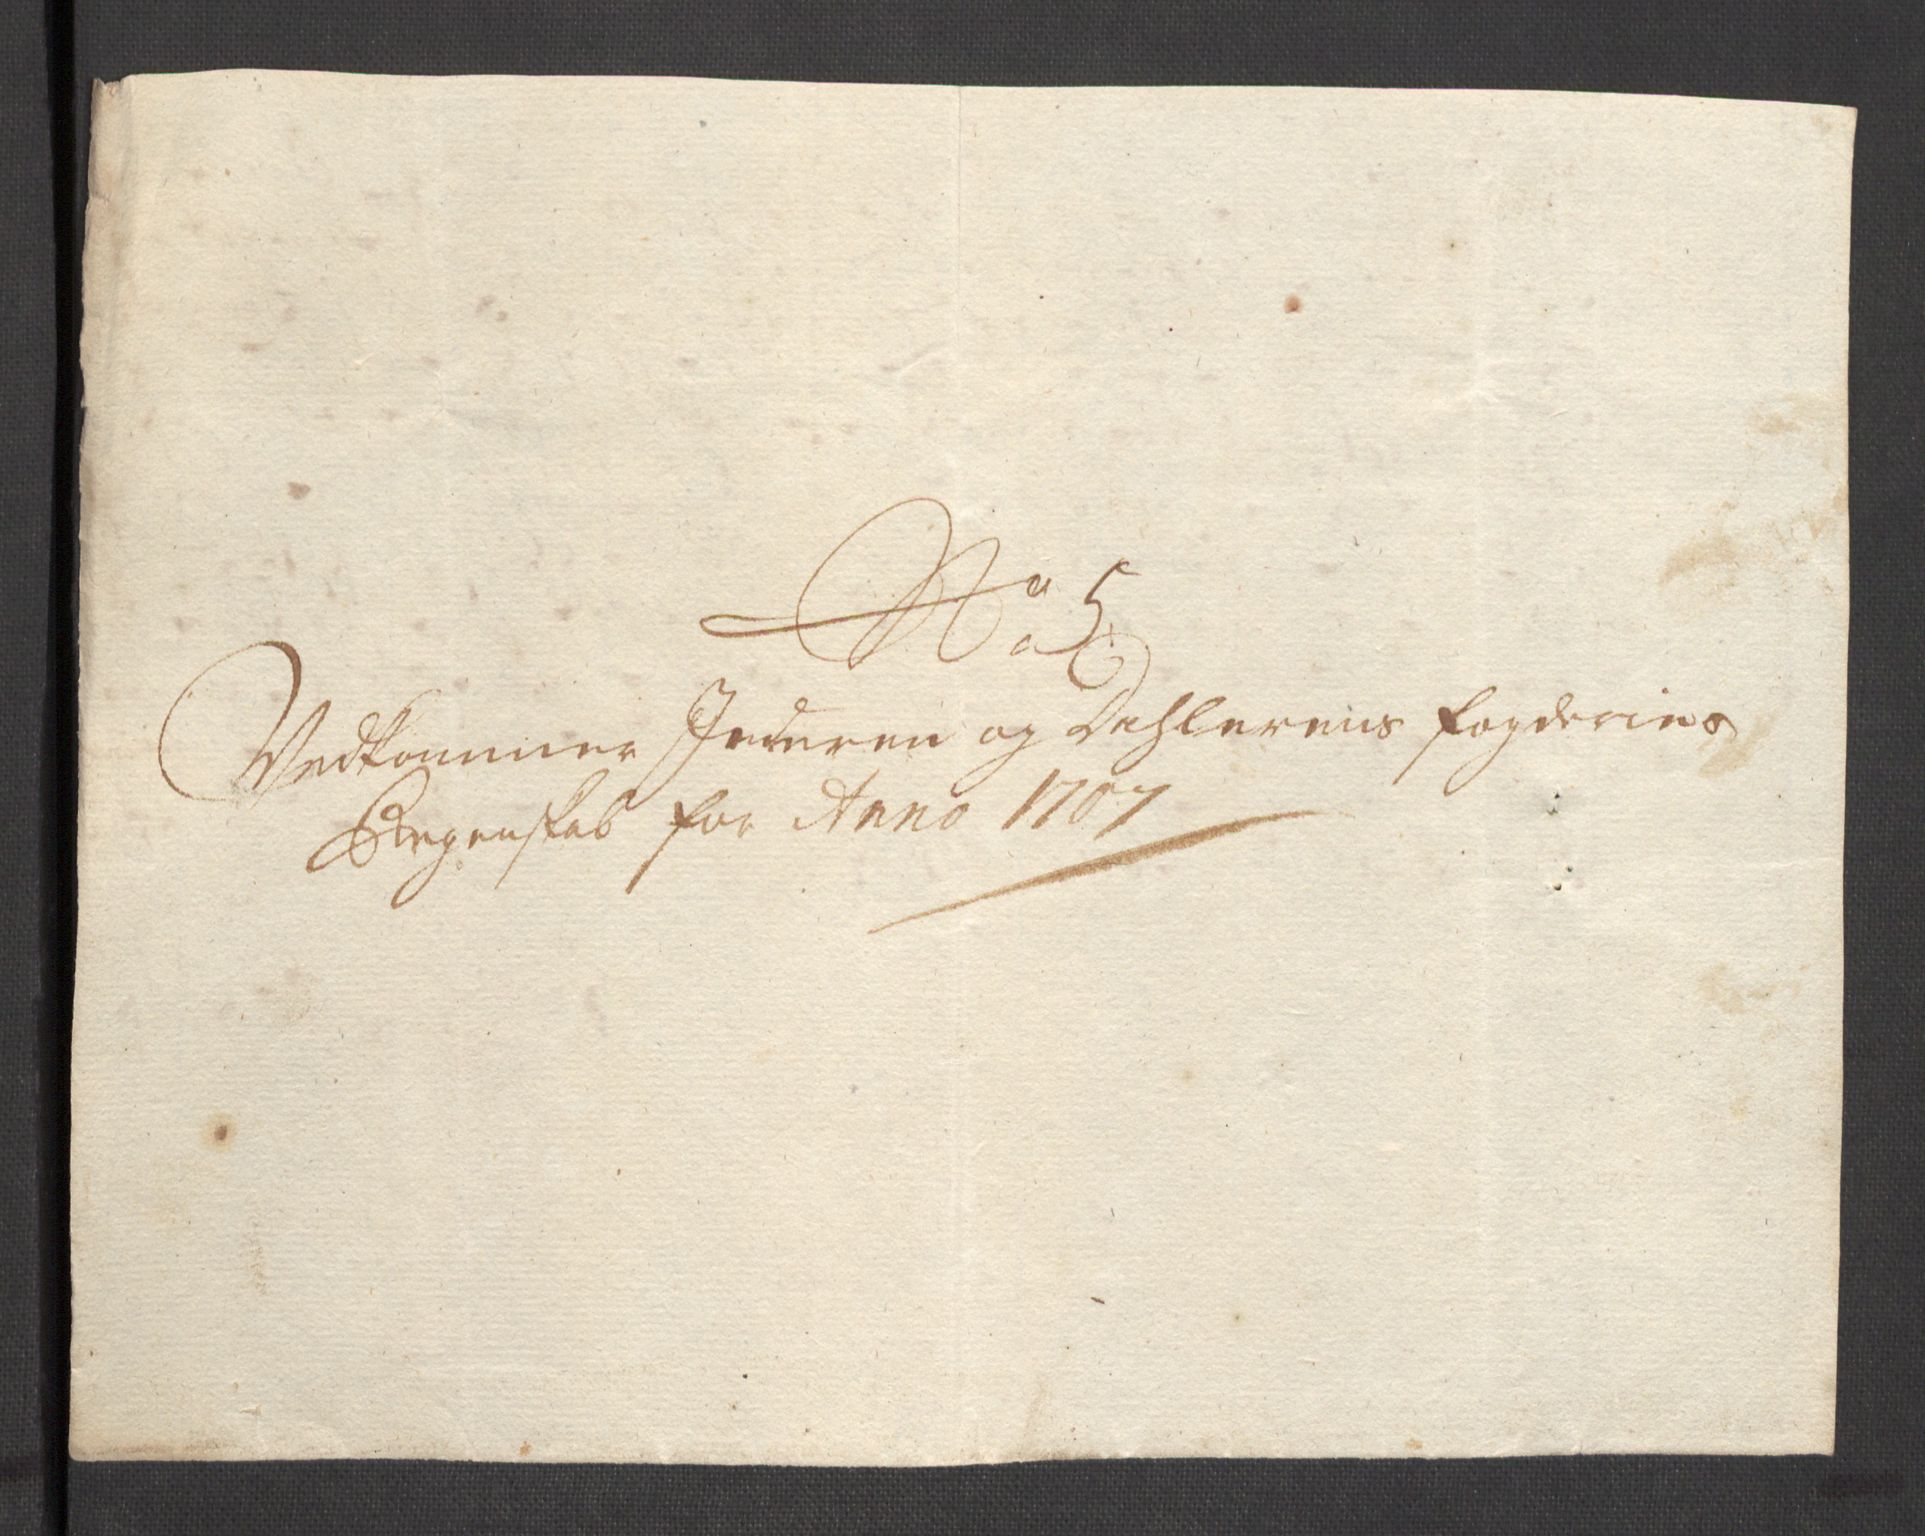 No 5
Vedkommer Jederen og Dahlerens fogderies
Regenskab for Anno 1707